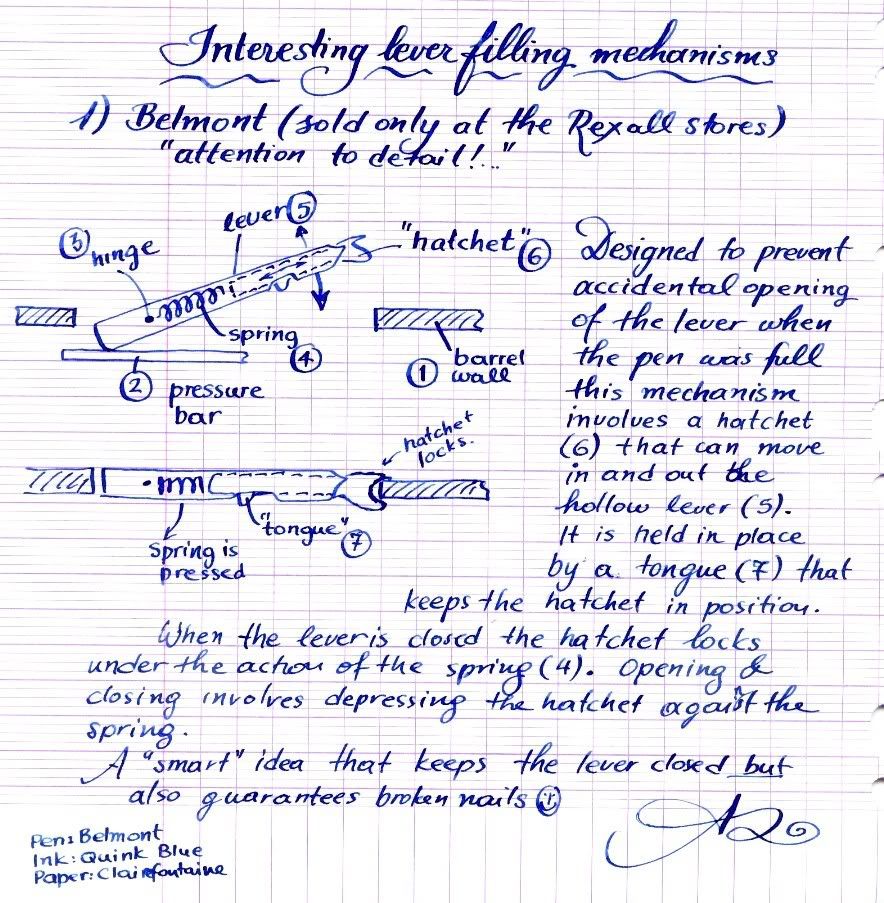 Interesting lever filling mechanisms
1) Belmont (sold only at the Rexall stores)
"attention to detail!..."
lever 5
3 hinge
"hatchet" 6
spring 4
1 barrel wall
2 pressure bar
hatchet locks.
"tongue" 7
spring is pressed
Designed to prevent
accidental opening
of the lever when
the pen was full
this mechanism
involves a hatchet
(6) that can move
in and out the
hollow lever (5).
It is held in place
by a tongue (7) that
keeps the hatchet in position.
When the lever is closed the hatchet locks
under the action of the spring (4). Opening &
closing involves depressing the hatchet against the
spring.
A "smart" idea that keeps the lever closed but
also guarantees broken nails
Pen: Belmont
Ink: Quink Blue
Paper: Clairefontaine